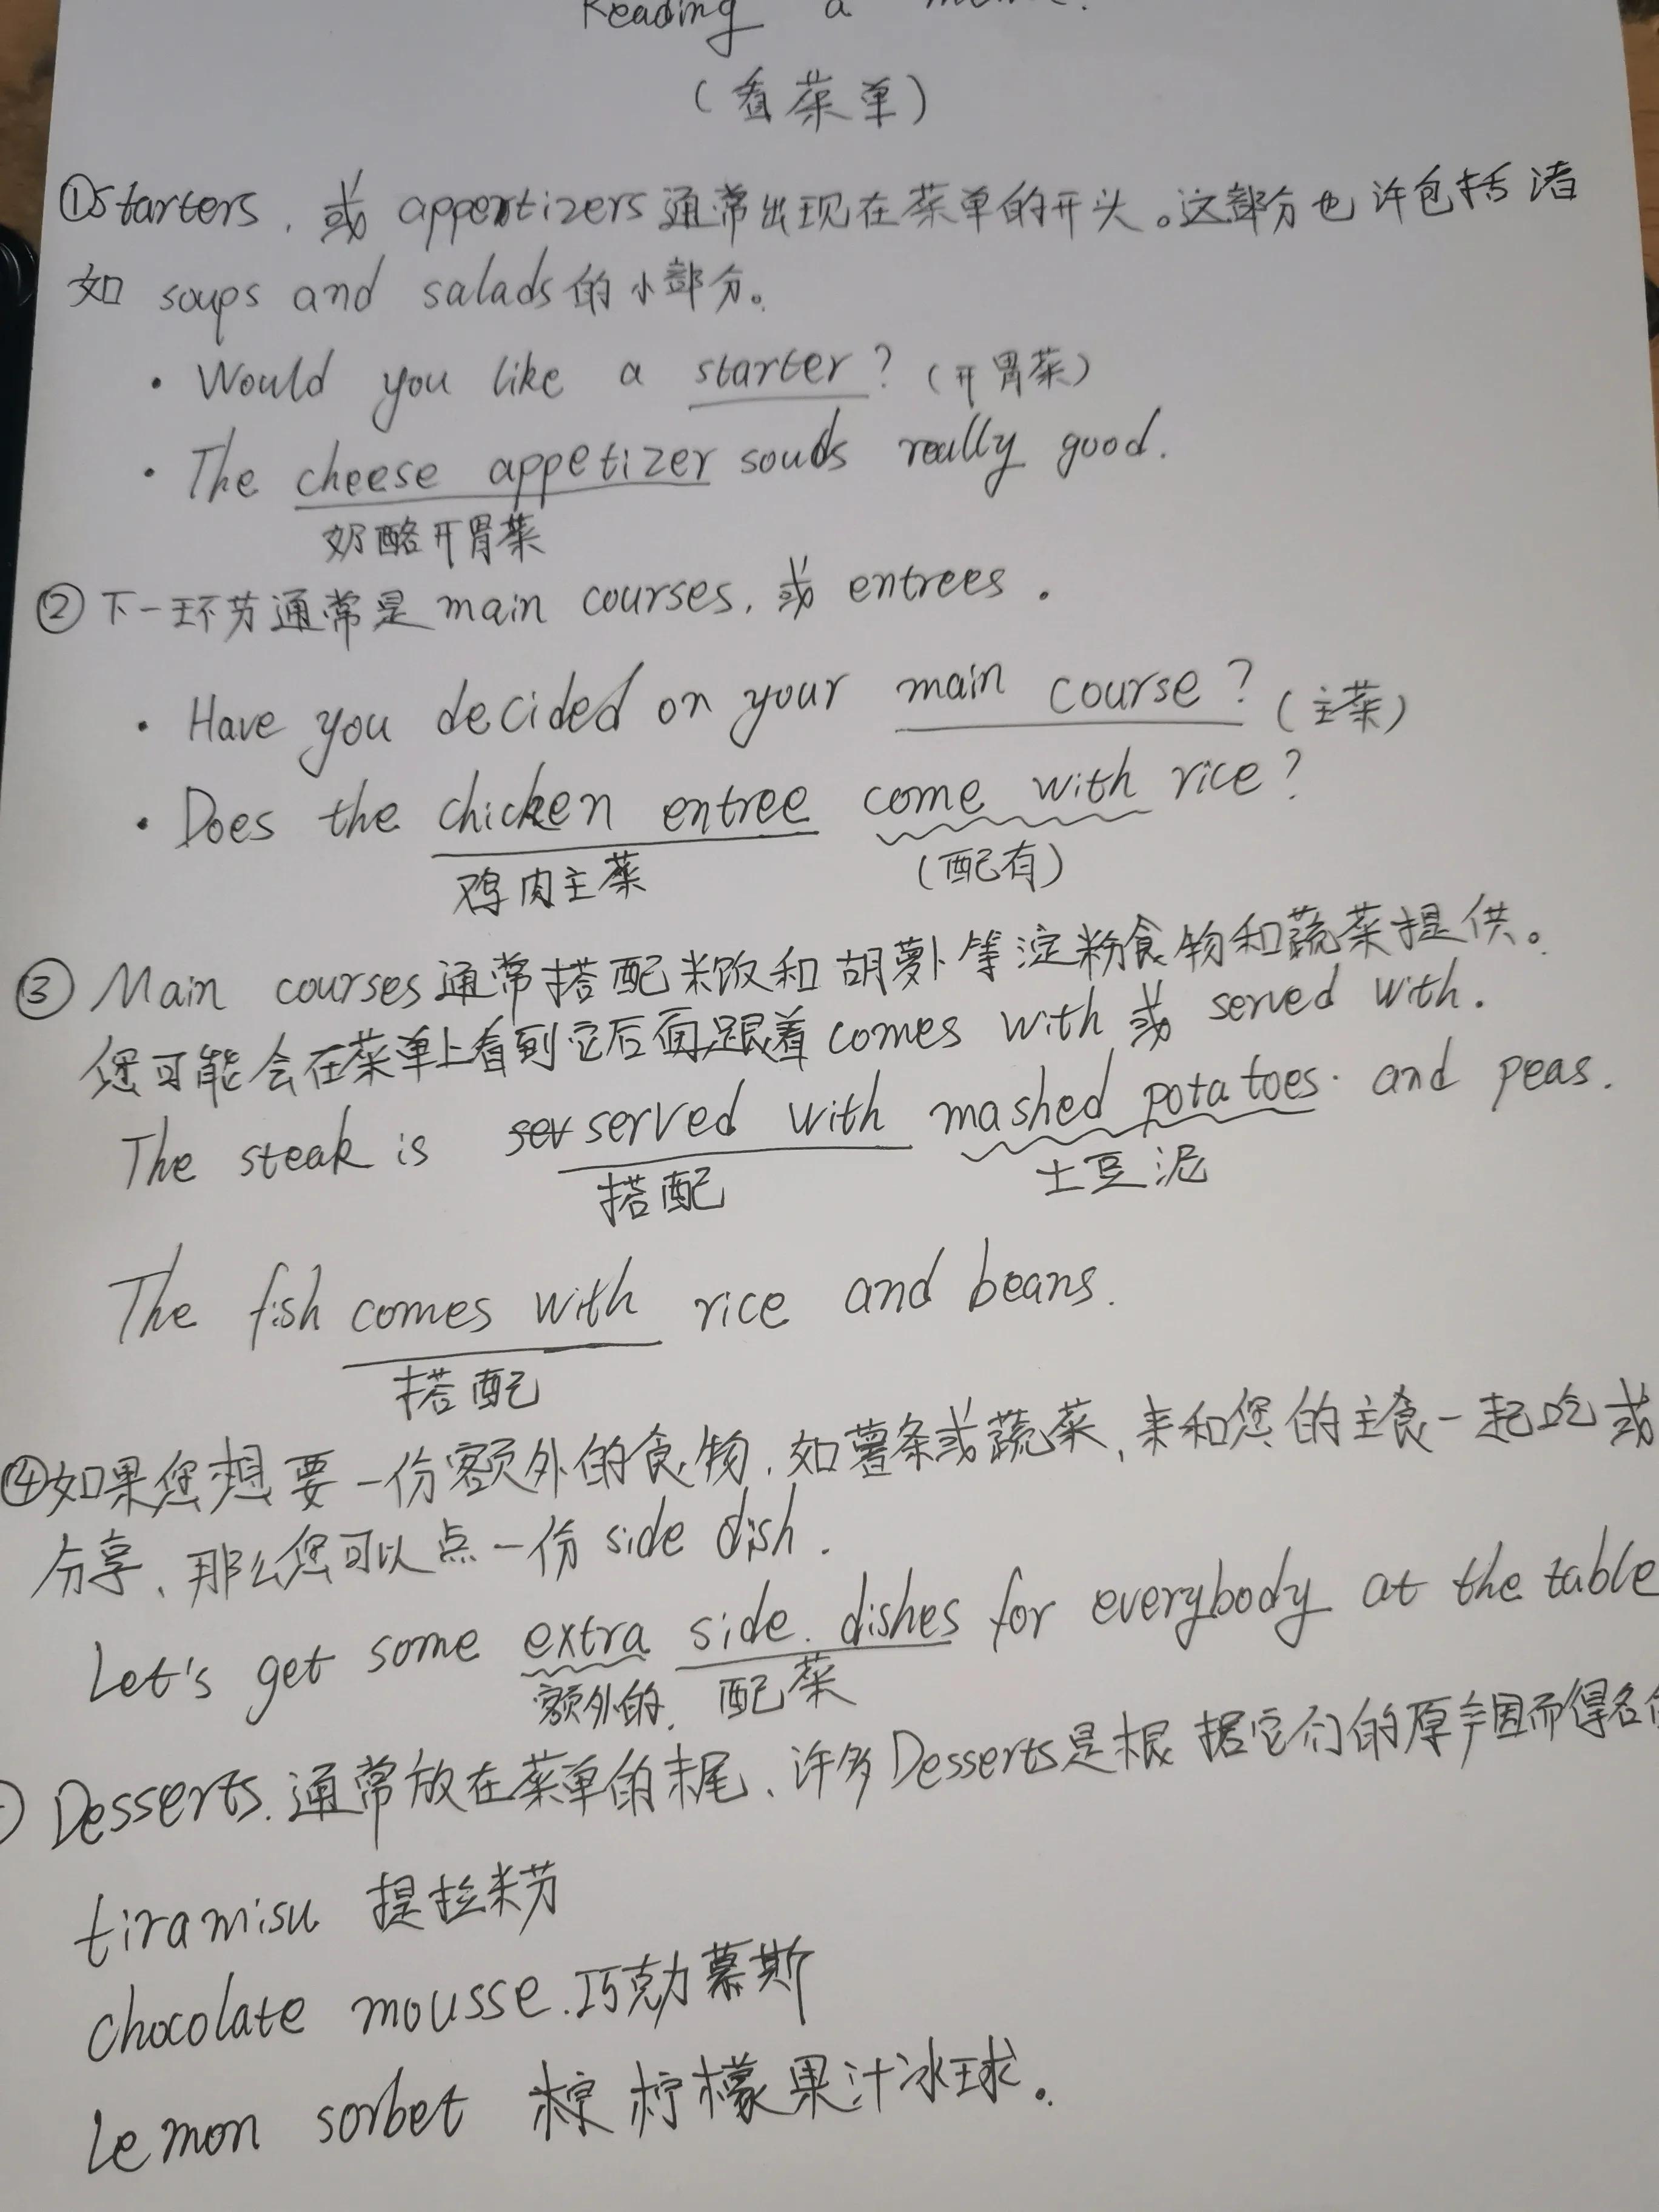 Reading a menu.
(看菜单)
①Starters, 或 appertizers通常出现在菜单的开头。这部分也许包括诸
如 soups and salads的小部分。
· Would you like a starter? (开胃菜)
· The cheese appetizer souds really good.
奶酪开胃菜
②下一环节通常是main courses, 或 entrees.
· Have you decided on your main course? (主菜)
· Does the chicken entree come with rice?
鸡肉主菜 (配有)
③ Main courses通常搭配米饭和胡萝卜等淀粉食物和蔬菜提供。
您可能会在菜单上看到它后面跟着comes with 或 served with.
The steak is ser served with mashed potatoes. and peas.
搭配 土豆泥
The fish comes with rice and beans.
搭配
④如果您想要一份额外的食物,如薯条或蔬菜,来和您的主食一起吃或
分享、那么您可以点一份 side dish.
Let's get some extra side. dishes for everybody at the table
额外的. 配菜
Desserts.通常放在菜单的末尾、许多Desserts是根据它们的原 而得名
tiramisu 提拉米苏
chocolate mousse.巧克力慕斯
Lemon sorbet 柠檬果汁冰球.